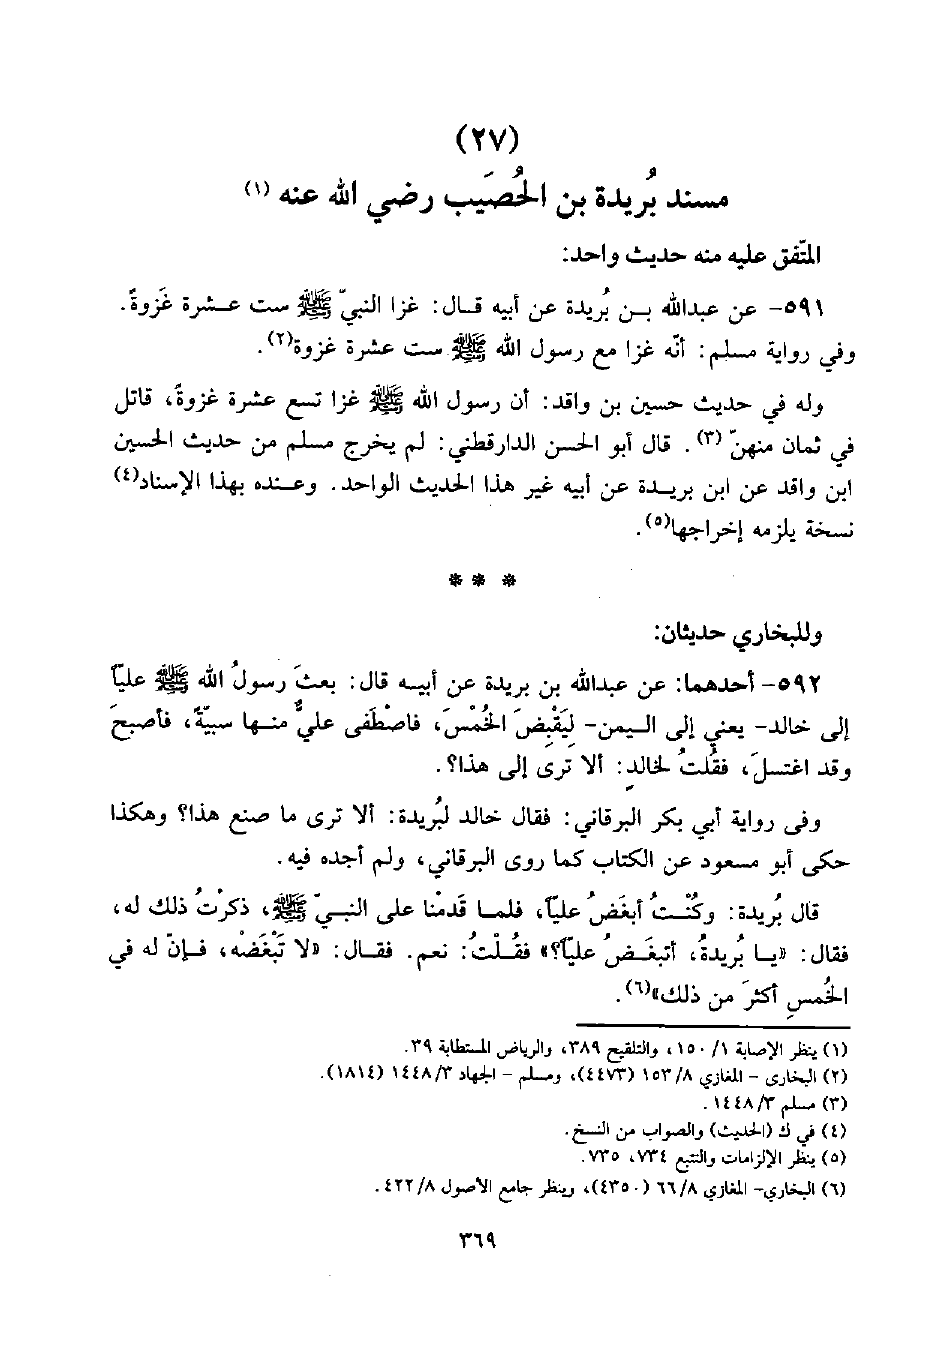 (٢٧)
مسند بُريدة بن الحُصَيب رضي الله عنه (١)
المتّفق عليه منه حديث واحد:
٥٩١- عن عبدالله بـن بُريدة عن أبيه قـال: غزا النبيّ ﷺ ست عـشرة غَزوةً.
وفي رواية مسلم: أنّه غزا مع رسول الله ﷺ ست عشرة غزوة(٢).
وله في حديث حسين بن واقد: أن رسول الله ﷺ غزا تسع عشرة غزوةً، قاتل
في ثمان منهنّ (٣). قال أبو الحسن الدارقطني: لم يخرج مسلم من حديث الحسين
ابن واقد عن ابن بريـدة عن أبيه غير هذا الحديث الواحد. وعـنده بهذا الإسناد(٤)
نسخة يلزمه إخراجها(٥).
* * *
وللبخاري حديثان:
٥٩٢- أحدهما: عن عبدالله بن بريدة عن أبيـه قال: بعثَ رسولُ الله ﷺ عليّاً
إلى خالد- يعني إلى الـيمن- ليَقْبِضَ الخُمْسَ، فاصْطَفى عليٌّ منـها سبيّةً، فأصبحَ
وقد اغتسلَ، فقُلتُ لخالدٍ: ألا ترى إلى هذا؟.
وفى رواية أبي بكر البرقاني: فقال خالد لبُريدة: ألا ترى ما صنع هذا؟ وهكذا
حكى أبو مسعود عن الكتاب كما روى البرقاني، ولم أجده فيه.
قال بُريدة: وكُنْـتُ أبغَضُ عليّاً، فلمـا قدمْنا على النبـيّ ﷺ، ذكرْتُ ذلك له،
فقال: «يـا بُريدةُ، أتبغَـضُ عليّاً؟» فقُـلْتُ: نعم. فقـال: «لا تَبْغَضْه، فـإنّ له في
الخُمسِ أكثرَ من ذلك»(٦).
(١) ينظر الإصابة ١/ ١٥٠، والتلقيح ٣٨٩، والرياض المستطابة ٣٩.
(٢) البخارى - المغازي ٨/ ١٥٣ (٤٤٧٣)، ومسلم - الجهاد ٣/ ١٤٤٨ (١٨١٤).
(٣) مسلم ٣/ ١٤٤٨.
(٤) في ك (الحديث) والصواب من النسخ.
(٥) ينظر الإلزامات والتتبع ٧٣٤، ٧٣٥.
(٦) البخاري- المغازي ٨/ ٦٦ (٤٣٥٠)، وينظر جامع الأصول ٨/ ٤٢٢.
٣٦٩